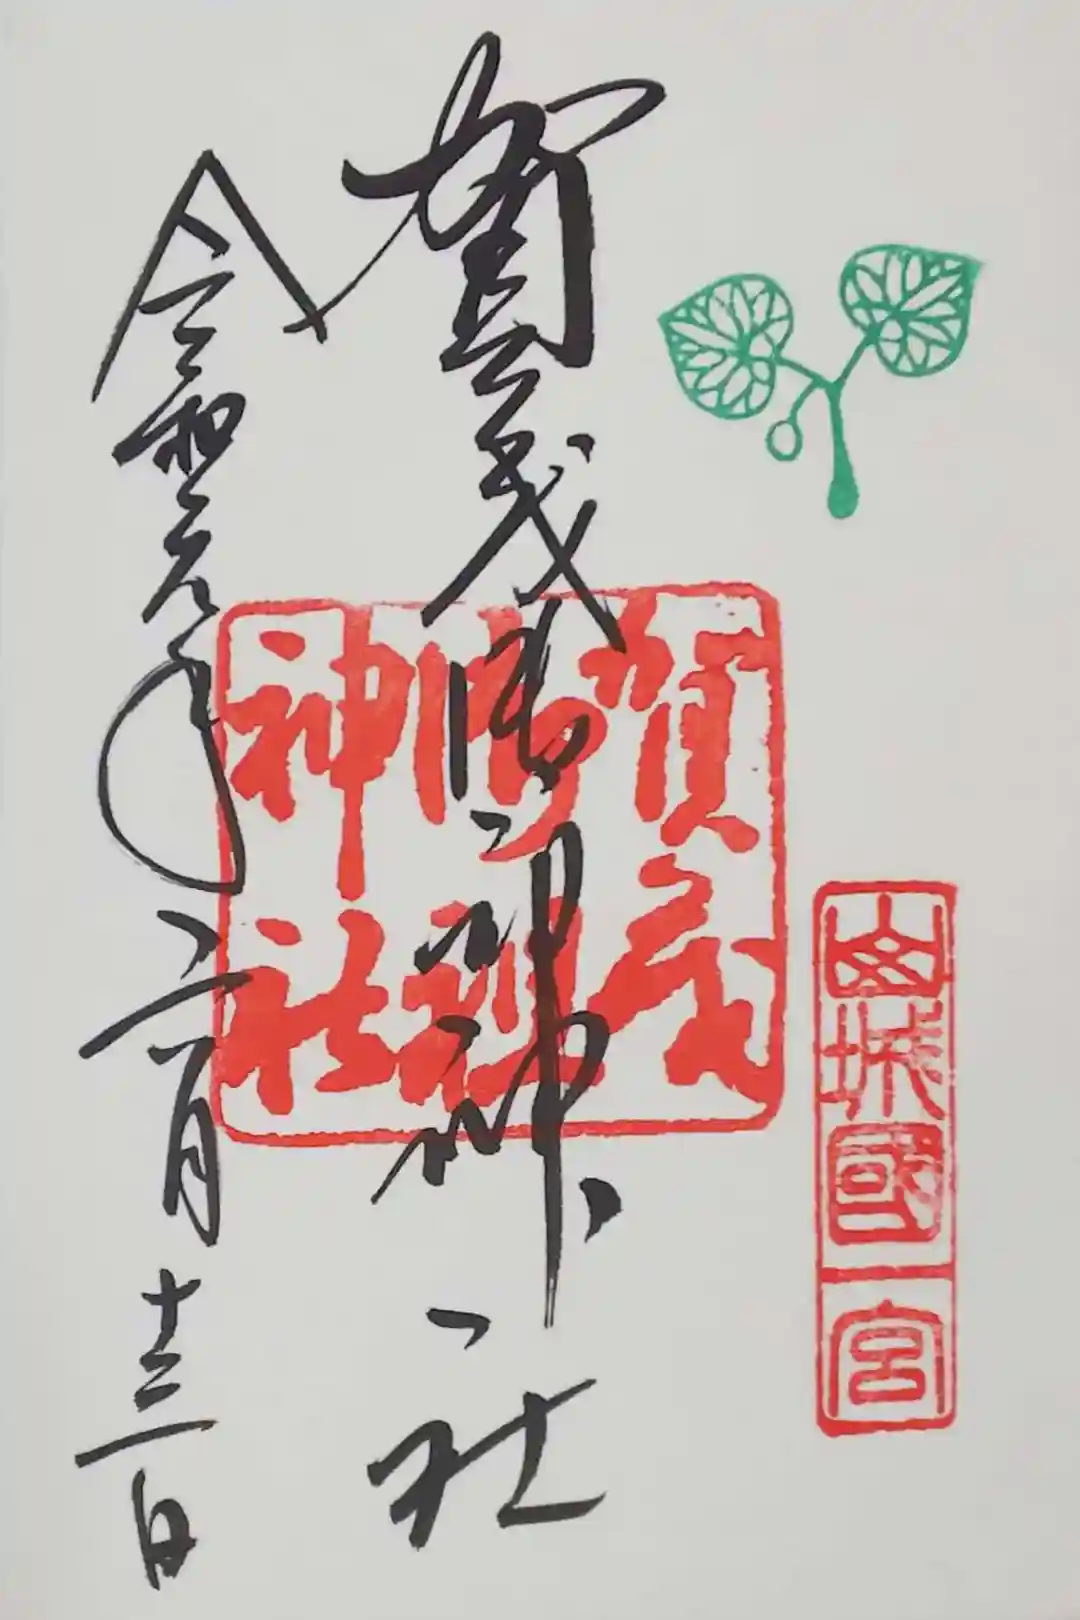 山城國一宮
賀茂御祖神社
賀茂
御祖
神社
令和元年月十三日